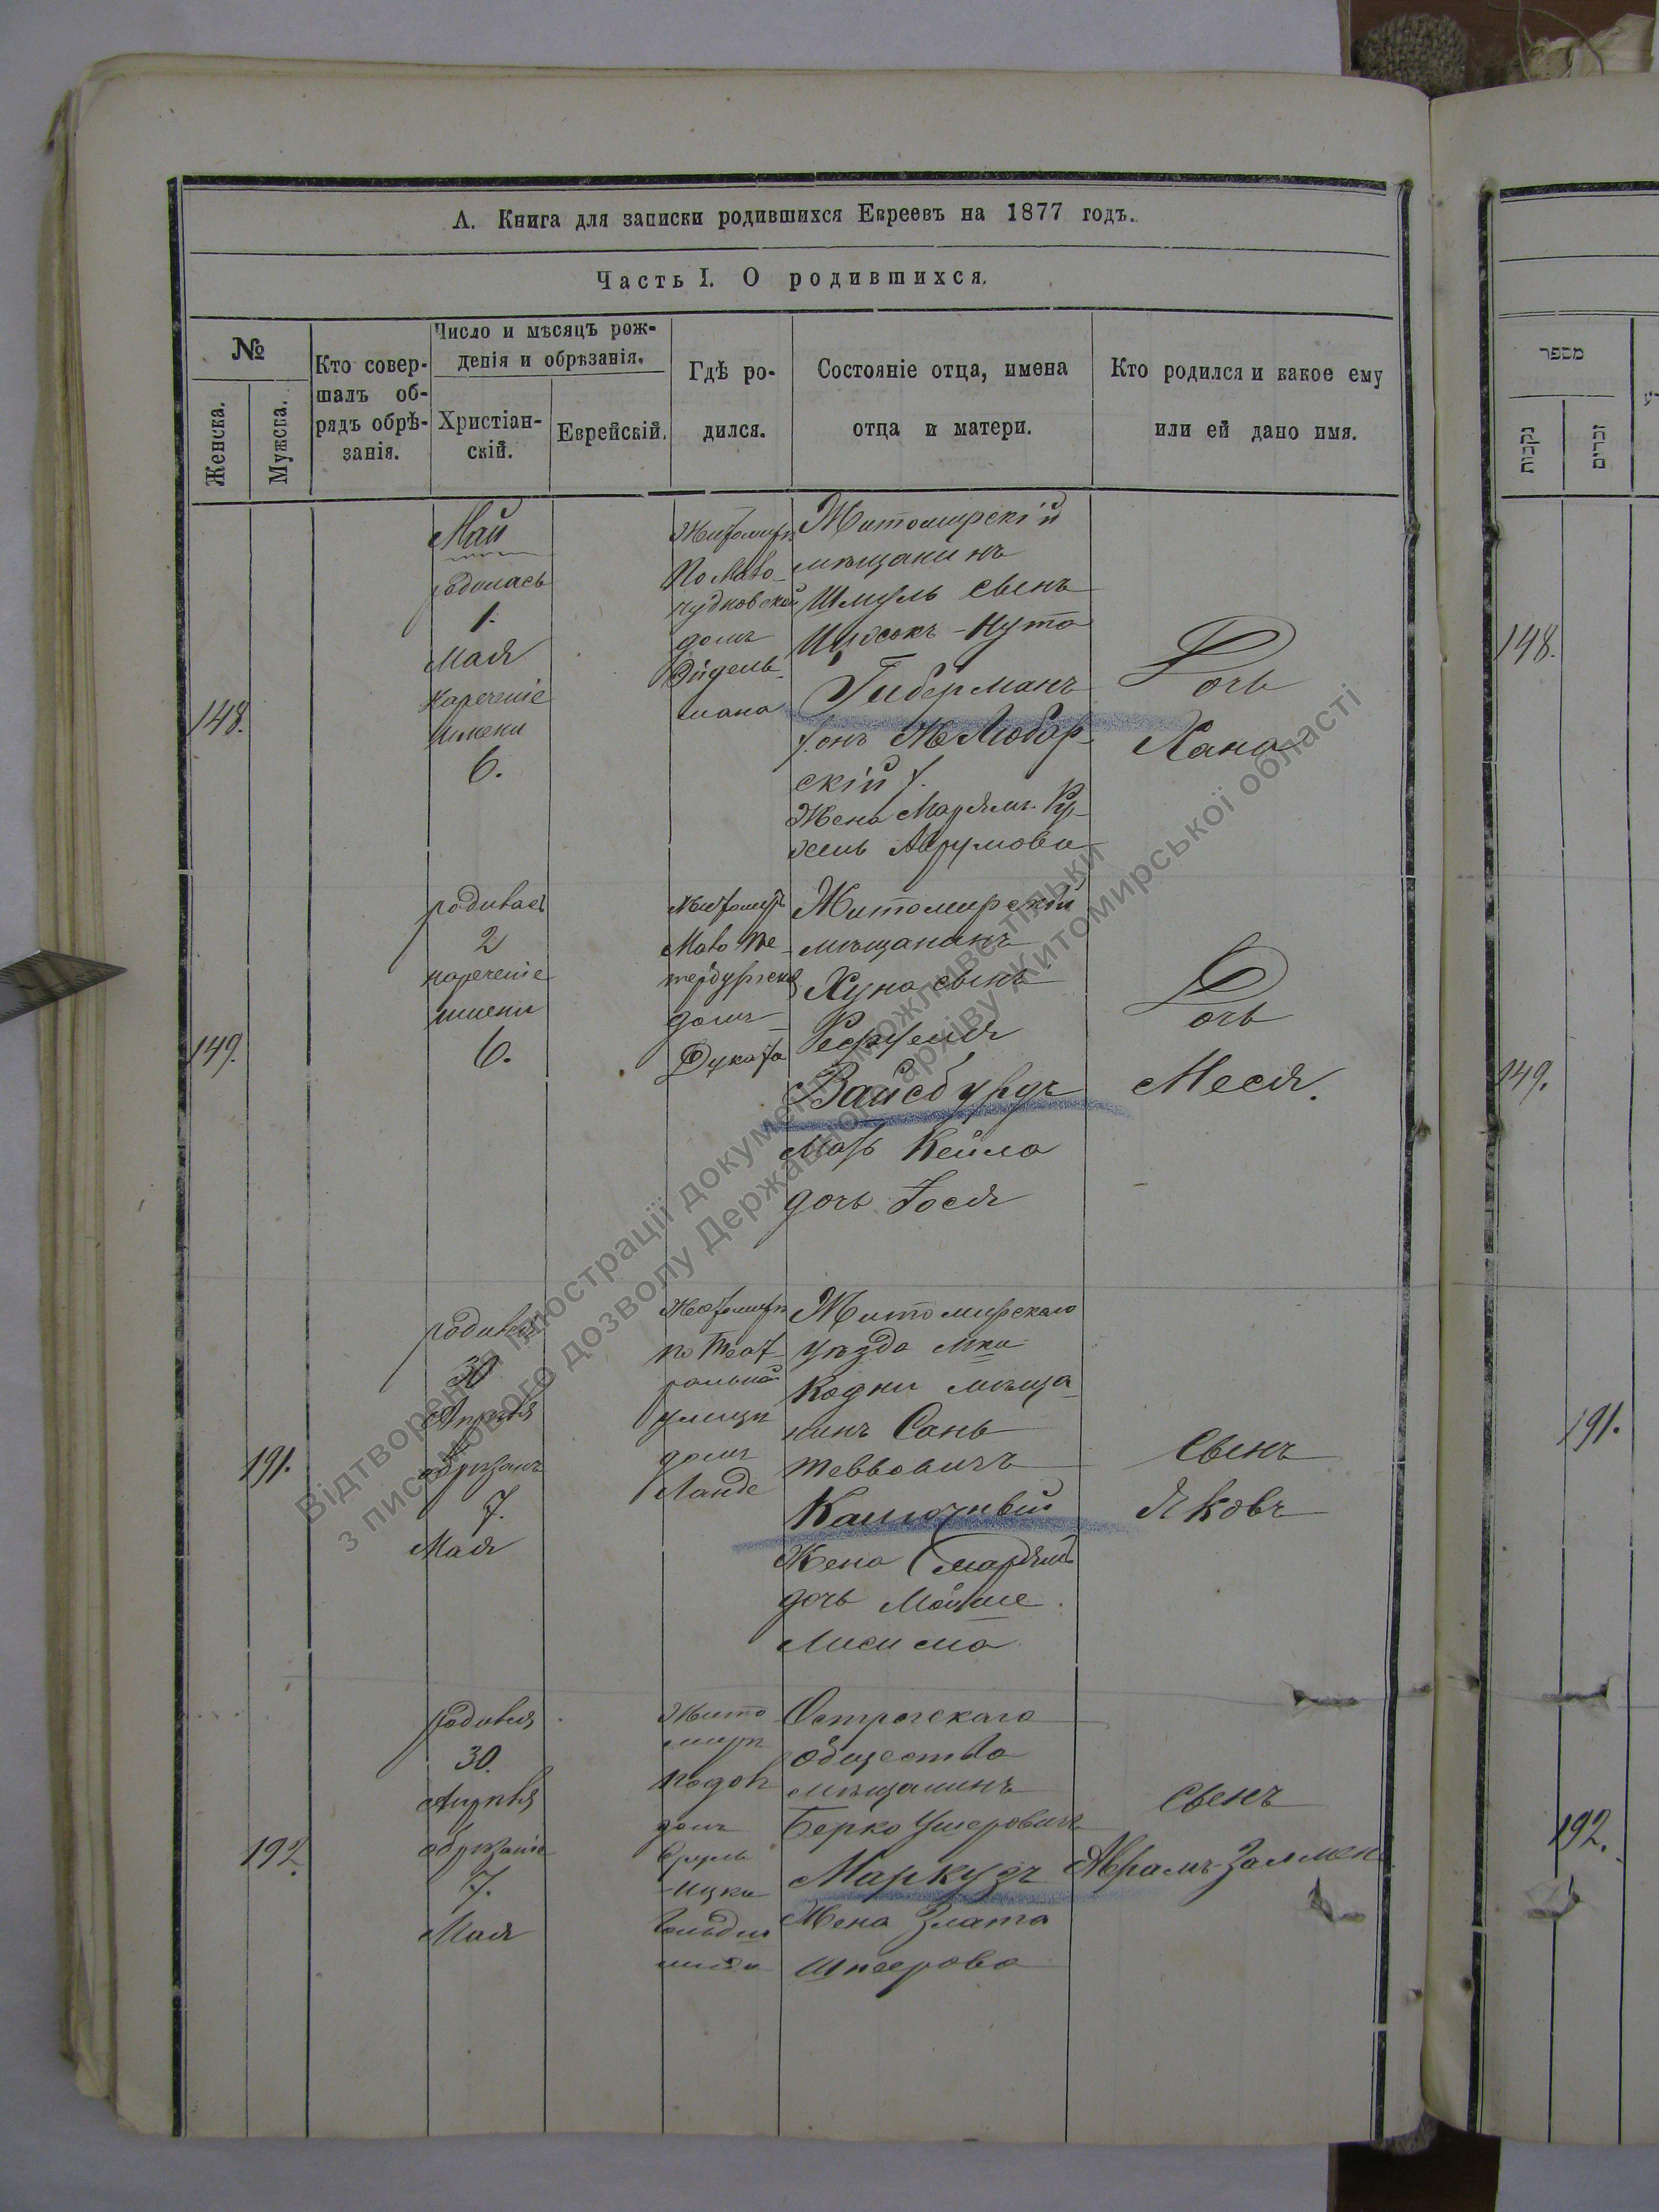 А. Книга для записки родившихся Евреевъ на 1877 годъ.
Часть I. О родившихся.
№
Женска.
Мужска.
Кто совер-
шалъ об-
рядъ обрѣ-
занія.
Число и мѣсяцъ рож-
денія и обрѣзанія.
Христіан-
скій.
Еврейскій.
Гдѣ ро-
дился.
Состояніе отца, имена
отца и матери.
Кто родился и какое ему
или ей дано имя.
148.
Май
родилась
1.
Мая
Нареченіе
имени
6.
Житомиръ
По Мало
чудновской
домъ
Эйдель-
мана
Житомирскій
мѣщанинъ
Шмуль сынъ
Ицхокъ-Нута
Гиберманъ
/ онъ же Любар-
скій /.
Жена Марьямъ Ру-
хель Аврумова
Дочь
Хана
149.
родилась
2
нареченіе
имени
6.
Житомиръ
Мало Пе-
тербургская
домъ
Дуката
Житомирскій
мѣщанинъ
Хуна сынъ
Рефуеля
Вайсбурдъ
Мать Кейла
дочь Іося
Дочь
Меся.
191.
родился
30
Апрѣля
обрѣзанъ
7.
Мая
Житомиръ
по Теат-
ральной
улицѣ
домъ
Ланде
Житомирскаго
уѣзда мка
Кодни мѣща
нинъ Сань
Тевьовичъ
Жена Марьямъ
дочь Мойше
Сынъ
Яковъ
192.
родился
30.
Апрѣля
обрѣзаніе
7.
Мая
Жито
миръ
домъ
Сруль
-Ицка
Острогскаго
общества
мѣщанинъ
Берко Ушеровичъ
Маркузъ
Жена Злата
Шнеерова
сынъ
Аврамъ-Залмен
מספר
נקבות
זכרים
148.
149.
191.
192.
Відтворення ілюстрації документа можливе тільки
з письмового дозволу Державного архіву Житомирської області